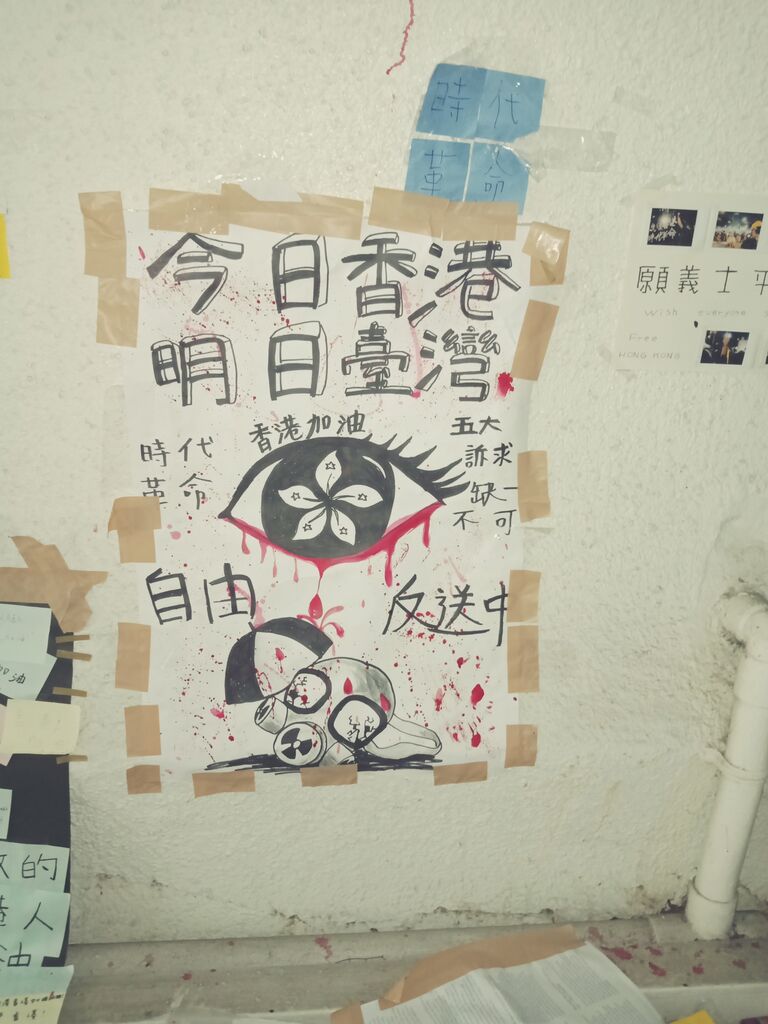 時代
革命
今日香港
明日臺灣
香港加油
時代
革命
五大
訴求
缺一
不可
自由
反送中
願義士平
Wish everyone
Free
HONG KONG
的
人
油